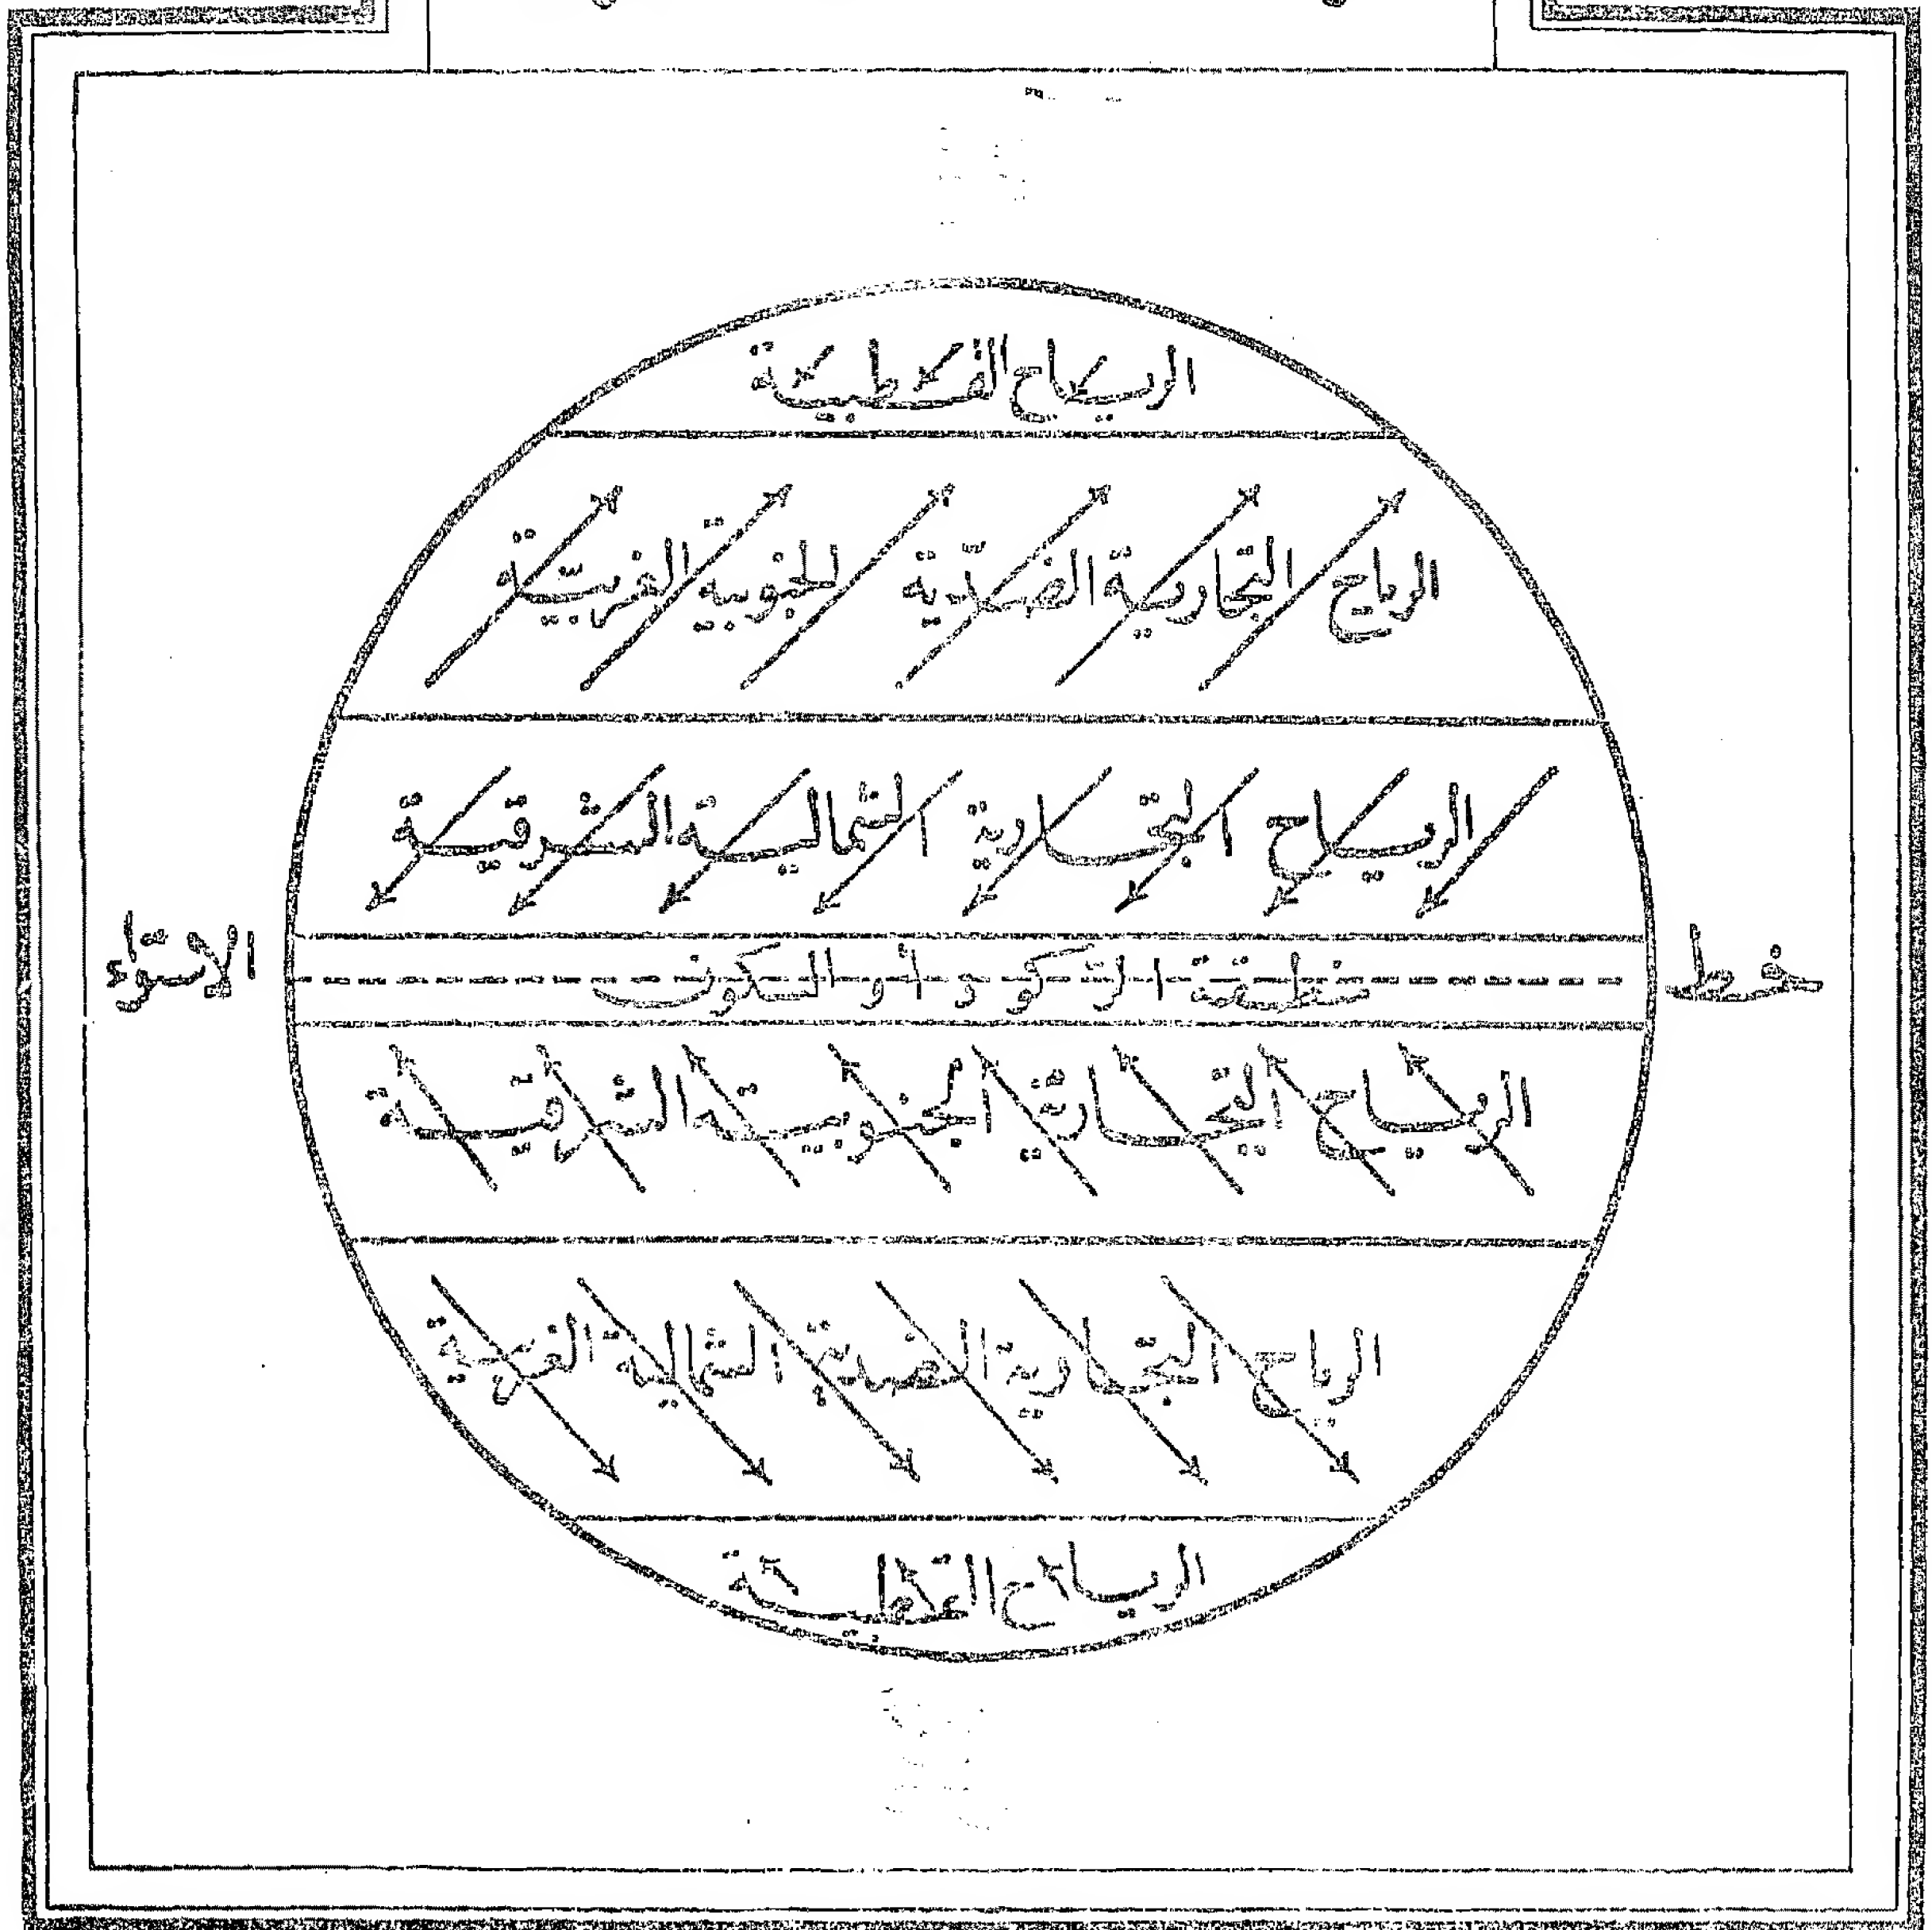 الرياح القطبية
الرياح التجارية الضدّية الجنوبية الغربيّة
الرياح التجارية الشمالية الشرقية
خط الاستواء
منطقة الركود أو السكون
الرياح التجارية الجنوبية الشرقية
الرياح التجارية الضدية الشمالية الغربية
الرياح القطبية